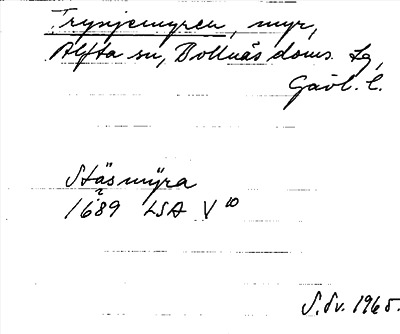 Trynjemyren, myr,
Alfta sn, Bollnäs doms. lg,
Gävl. l.
Stäsmÿra
1689 LSA V 10
S. Sv. 1965.